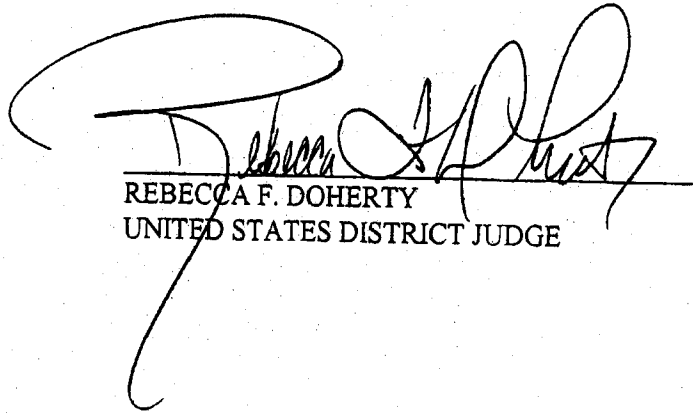 Rebecca F. Doherty
REBECCA F. DOHERTY
UNITED STATES DISTRICT JUDGE